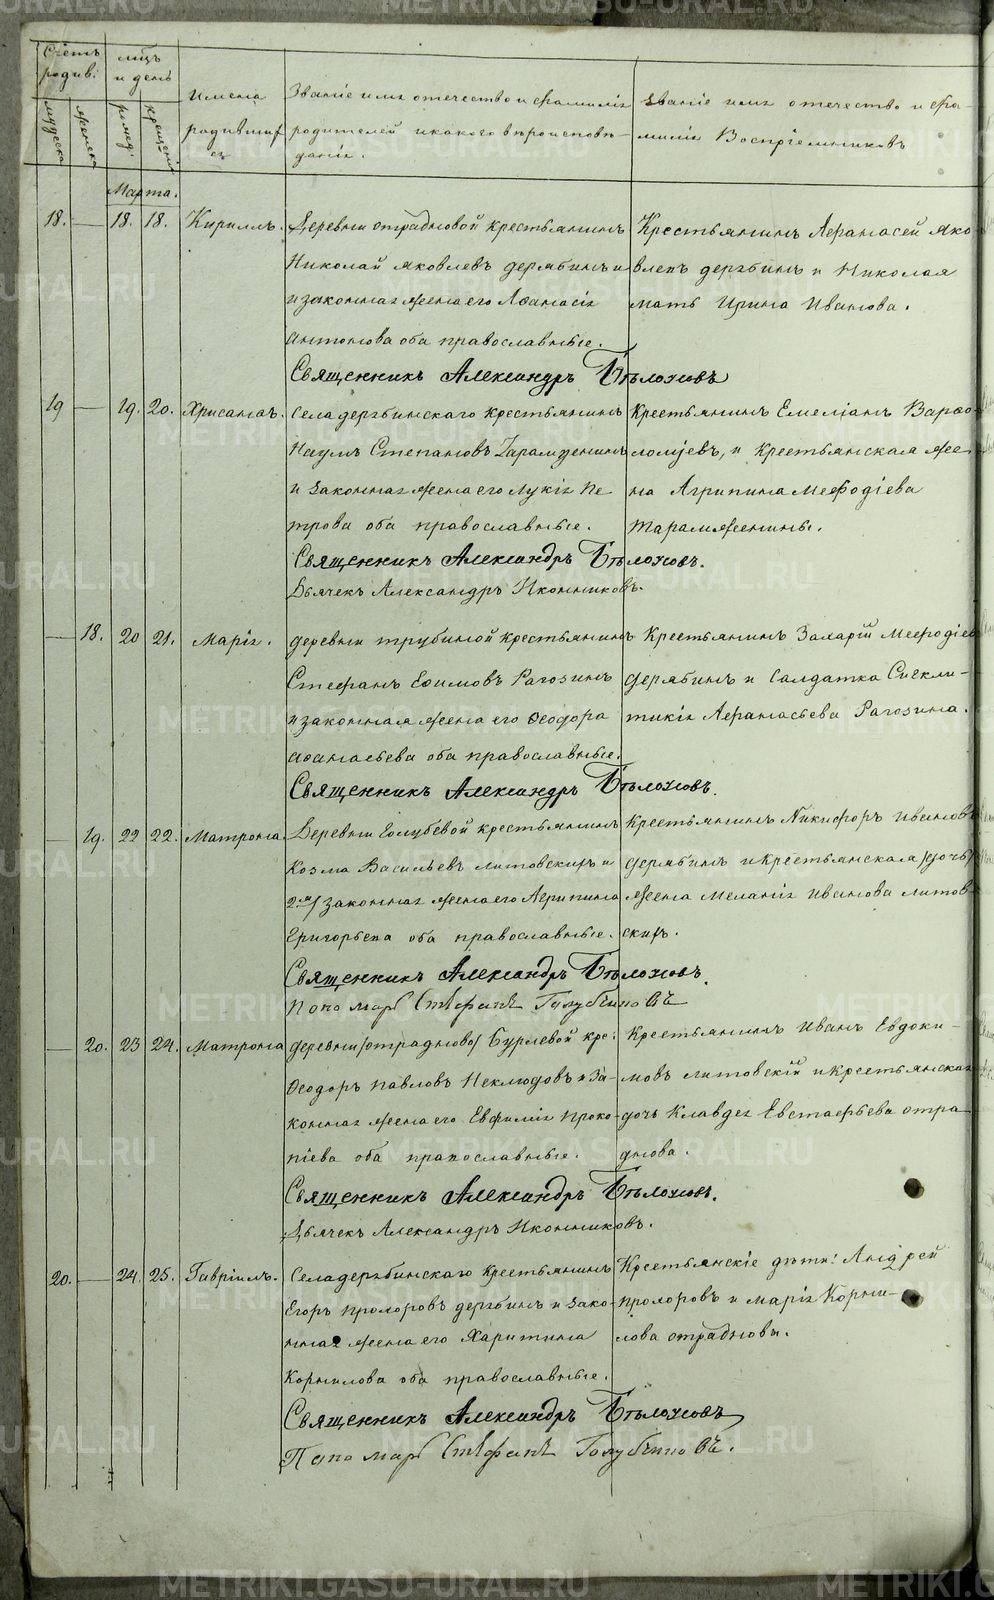 Счетъ родив:
мцъ и день
мужеска
женска
рожд:
крещенія
Имена родившихся
Званіе имя отечество и фамилія
родителей и какого вѣроисповѣ-
данія.
Званіе имя отечество и фа-
милія Воспріемниковъ
Марта.
18. — 18. 18. Кириллъ.
Деревни отрадновой крестьянинъ
Николай яковлевъ дерябинъ и
и законная жена его Афанасія
антонова оба православные.
Священникъ Александръ Бѣлоусовъ
Крестьянинъ Афанасей яко
влевъ дерябинъ и Николая
мать Ирина Иванова.
19 — 19. 20. Хрисанѳъ.
Села дерябинскаго крестьянинъ
Наумъ Степановъ
и законная жена его Лукія Пе
трова оба православные.
Священникъ Александръ Бѣлоусовъ.
Дьячекъ Александръ Иконниковъ.
Крестьянинъ Емеліанъ Варѳо-
ломѣевъ, и крестьянская же
на Агрипина Мефодіева
— 18. 20 21. Марія.
деревни трубиной крестьянинъ
Стефанъ Ефимовъ Рагозинъ
и законная жена его Ѳеодора
аѳанасьева оба православные.
Священникъ Александръ Бѣлоусовъ.
Крестьянинъ Захарій Мефодіев
дерябинъ и Салдатка Сиекли-
тикія Афанасьева Рагозина.
— 19. 22 22. Матрона.
Деревни Голубевой крестьянинъ
Козма Васильевъ литовскихъ и
2мъ/ законная жена его Агрипина
Григорьева оба православные.
Священникъ Александръ Бѣлоусовъ.
Пономарь Стефанъ Голубчиковъ
Крестьянинъ Никифоръ Ивановъ
дерябинъ и крестьянская /дочь/
жена Меланія Иванова литов
скихъ.
— 20. 23 24. Матрона
деревни /отрадново/ Бурлевой кре:
Ѳеодоръ Павловъ Неклюдовъ и За-
конная жена его Евфимія Проко-
піева оба православные.
Священникъ Александръ Бѣлоусовъ.
Дьячекъ Александръ Иконниковъ.
Крестьянинъ Иванъ Евдоки-
мовъ литовскій и крестьянская
дочь Клавдея Евстафьева отра
днова.
20. — 24. 25. Гавріилъ.
Села дерябинскаго крестьянинъ
Егоръ прохоровъ дерябинъ и зако-
нная жена его Харитина
Корнилова оба православные.
Священникъ Александръ Бѣлоусовъ
Пономарь Стефанъ Голубчиковъ.
Крестьянскіе дѣти: Андрей
прохоровъ и марія Корни-
лова отрадновы.